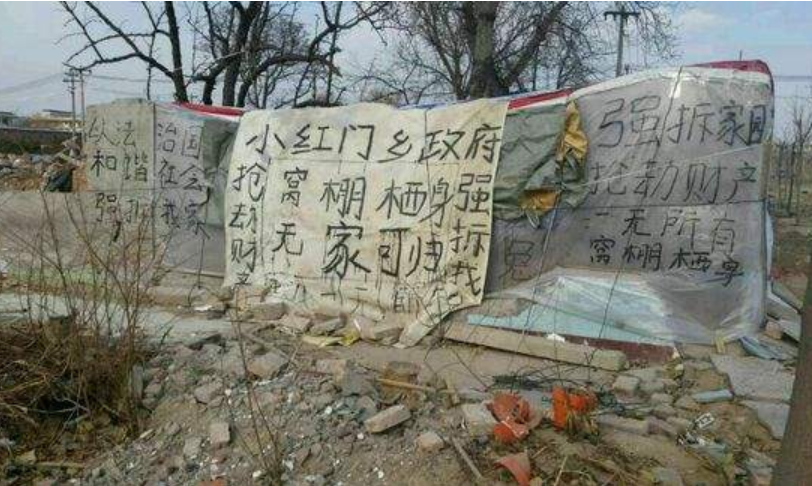 法治国
和谐社会
强拆我家
小红门乡政府
抢窝棚栖身强
劫无家可归拆
财我
产一无所有
强拆家园
抢劫财产
一无所有
窝棚栖身